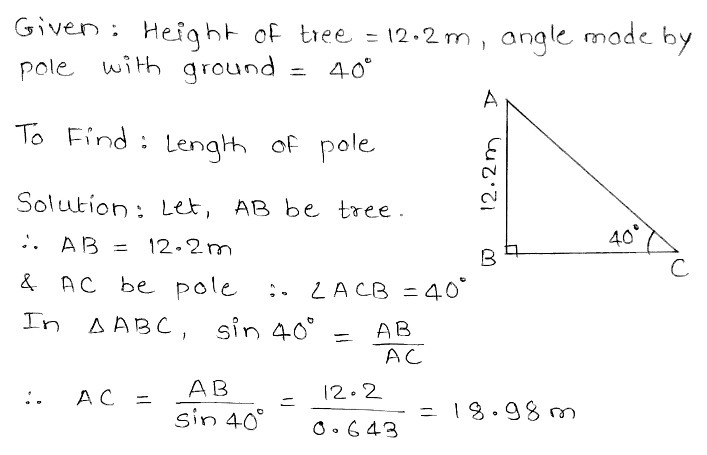 Given : Height of tree = 12.2 m, angle made by
pole with ground = 40°
To Find : Length of pole
Solution : Let, AB be tree.
∴ AB = 12.2m
& AC be pole ∴ ∠ACB = 40°
In △ABC, sin 40° = AB/AC
∴ AC = AB/sin 40° = 12.2/0.643 = 18.98 m
A
12.2m
B
40°
C